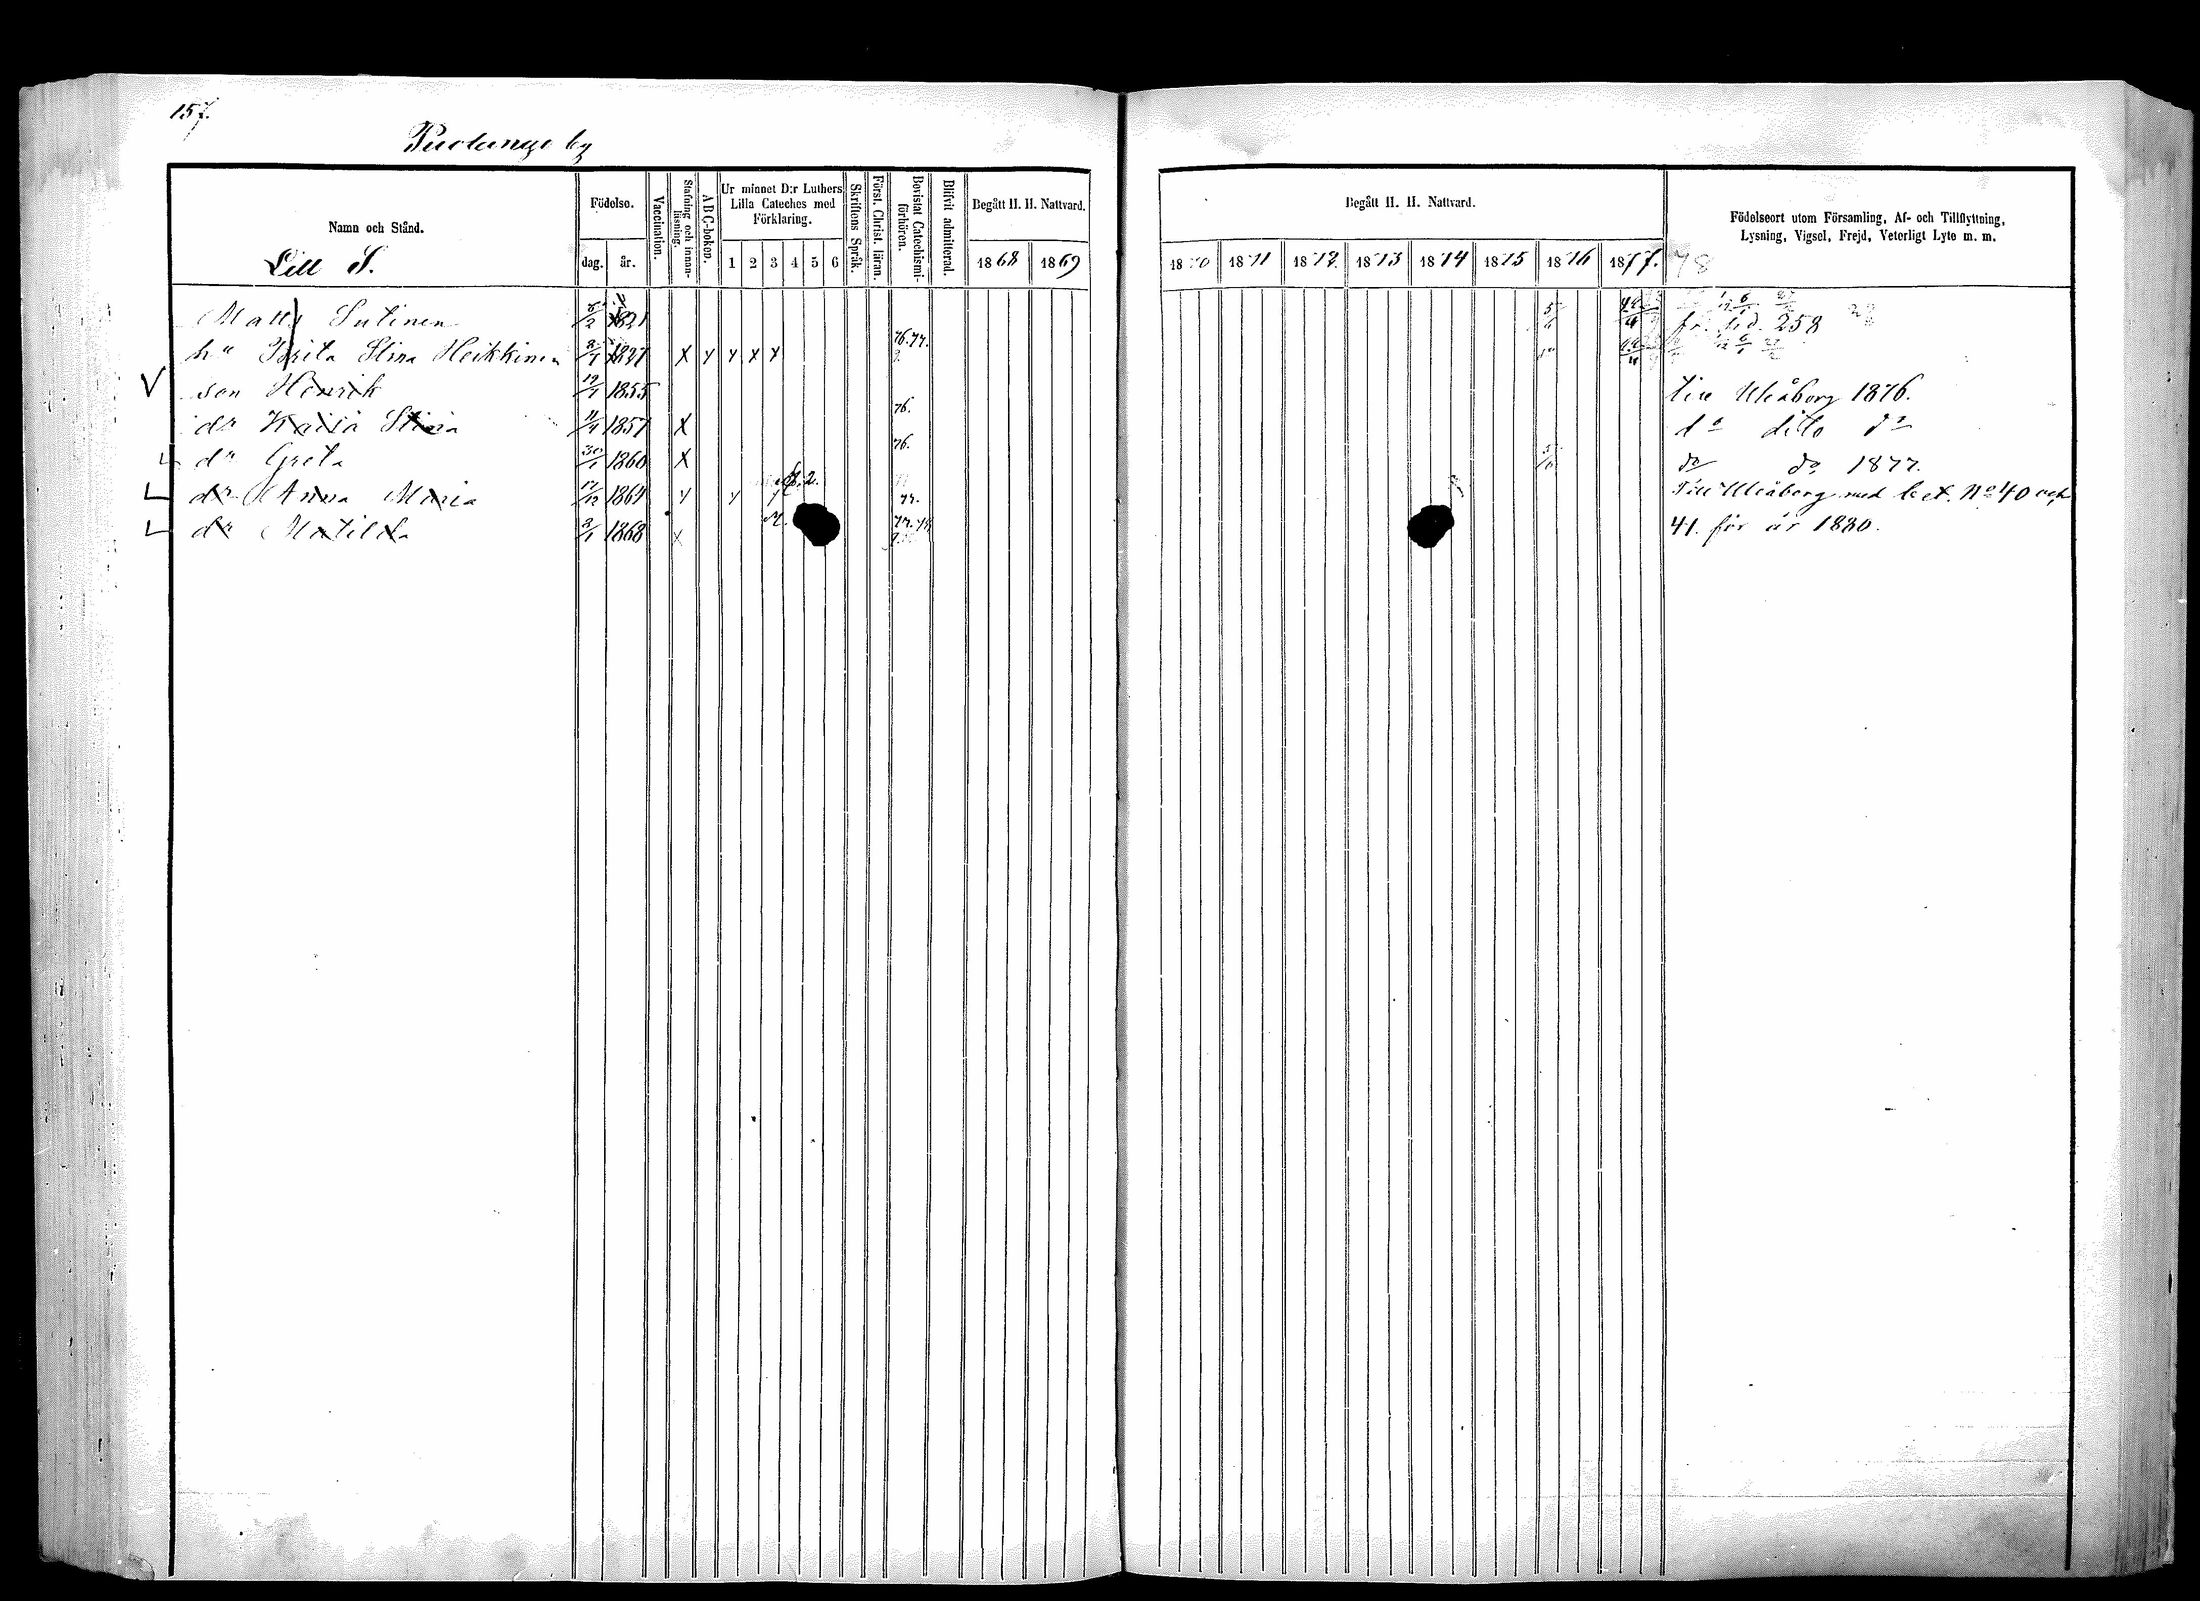 157.
Puolango by
Namn och Stånd.
Födelse.
Vaccination.
Stafning och innan-läsning.
ABC-boken.
Ur minnet D:r Luthers Lilla Cateches med Förklaring.
Skriftens Språk.
Först. Christ. läran.
Bevistat Catechismi-förhören.
Blifvit admitterad.
Begått H. H. Nattvard.
Begått H. H. Nattvard.
Födelseort utom Församling, Af- och Tillflyttning, Lysning, Vigsel, Frejd, Veterligt Lyte m. m.
Lill S.
dag. år. 1 2 3 4 5 6 1868 1869 1870 1871 1872. 1873 1874 1875 1876 1877. 78
Matts Sutinen 1821 fr. sid. 258
hu Brita Stina Heikkinen 8/1 1827 X y y x x 76.77.
son Henrik 19/1 1855 till Uleåborg 1876.
dr Kaisa Stina 11/4 1857 X 76. do dito do
dr Greta 30/1 1860 X 76. do do 1877.
dr Anna Maria 17/12 1864 y y 77. Till Uleåborg med bet. No 40 och
dr Matilda 3/1 1868 x 77.78 41. för år 1880.